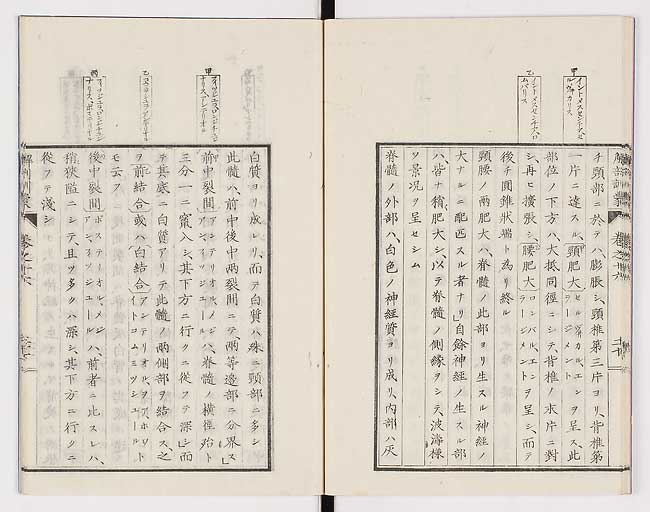 チ頸部ニ於テハ膨脹シ、頸椎第三片ヨリ、背椎第
一片ニ達スル、頸肥大セルヴィカル、エンラージメントヲ呈ス、此
部位ノ下方ハ、大抵同徑ニシテ、背椎ノ末片ニ對
シ、再ヒ擴張シ、腰肥大ロンバル、エンラージメントヲ呈シ、而テ
後チ圓錐狀端ト為リ終ル
頸腰ノ兩肥大ハ、脊髓ノ此部ヨリ生スル神經ノ
大ナルニ配匹スル者ナリ、自餘神經ノ生スル部
ハ、皆ナ稍肥大シ、以テ脊髓ノ側緣ヲシテ、波濤樣
ツ景况ヲ呈セシム
脊髓ノ外部ハ、白色ノ神經質ヨリ成リ、內部ハ灰
白質ヨリ成レリ、而テ白質ハ殊ニ頸部ニ多シ
此髓ハ、前中後中兩裂間ニテ、兩等邊部ニ分界ス
前中裂間アンテリオル、メジアン、フィッシュールハ、脊髓ノ橫徑殆ト
三分一ニ竄入シ、其下方ニ行クニ從フテ深シ、而
テ其底ニ白質アリテ此髓ノ兩側部ヲ結合ス、之
ヲ前結合或ハ白結合アンテリオル、ヲア、ホワイトコムミッシュールト
モ云フ
後中裂間ポステリオル、メジアン、フィッシュールハ、前者ニ比スレハ、
稍狹隘ニシテ、且ツ多クハ深シ、其下方ニ行クニ
從フテ淺シ